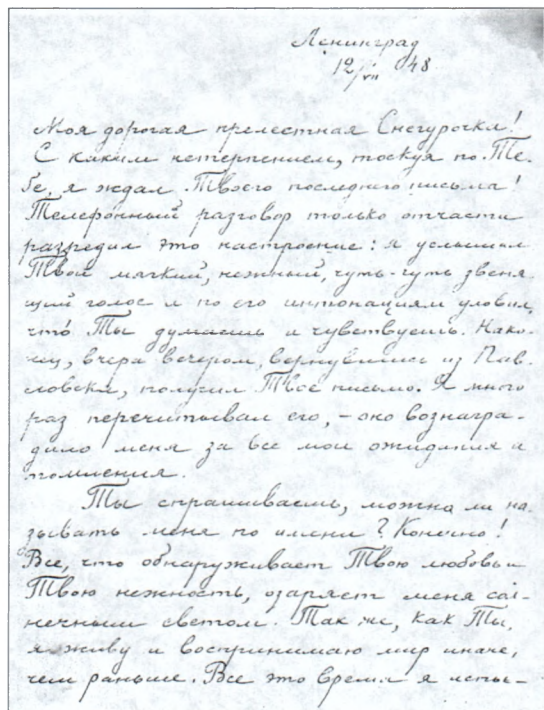 Ленинград
12/VII 48
Моя дорогая прелестная Снегурочка!
С каким нетерпением, тоскуя по Те-
бе, я ждал Твоего последнего письма!
Телефонный разговор только отчасти
разредил это настроение: я услышал
Твой мягкий, нежный, чуть-чуть звеня-
щий голос и по его интонациям уловил,
что́ Ты думаешь и чувствуешь. Нако-
нец, вчера вечером, вернувшись из Пав-
ловска, получил Твое письмо. Я много
раз перечитывал его, – оно вознагра-
дило меня за все мои ожидания и
томления.
Ты спрашиваешь, можно ли на-
зывать меня по имени? Конечно!
Все, что обнаруживает Твою любовь и
Твою нежность, озаряет меня сол-
нечным светом. Так же, как Ты,
я живу и воспринимаю мир иначе,
чем раньше. Все это время я испы-